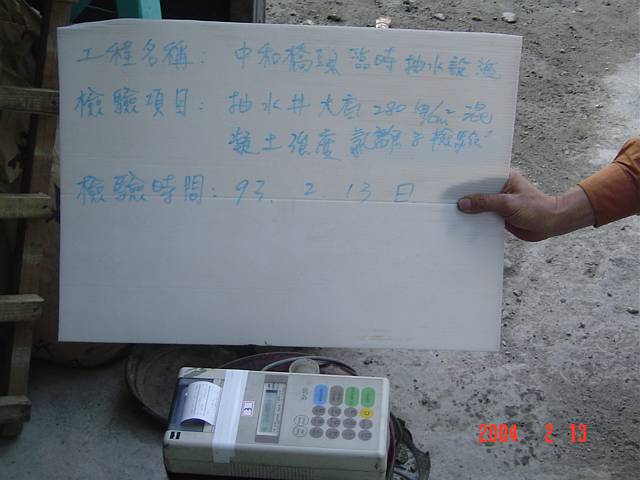 工程名稱: 中和橋頭臨時抽水設施
檢驗項目: 抽水井大底 280 kg/cm² 混
凝土強度氯離子檢驗
檢驗時間: 93. 2. 13 日
2004 2 13